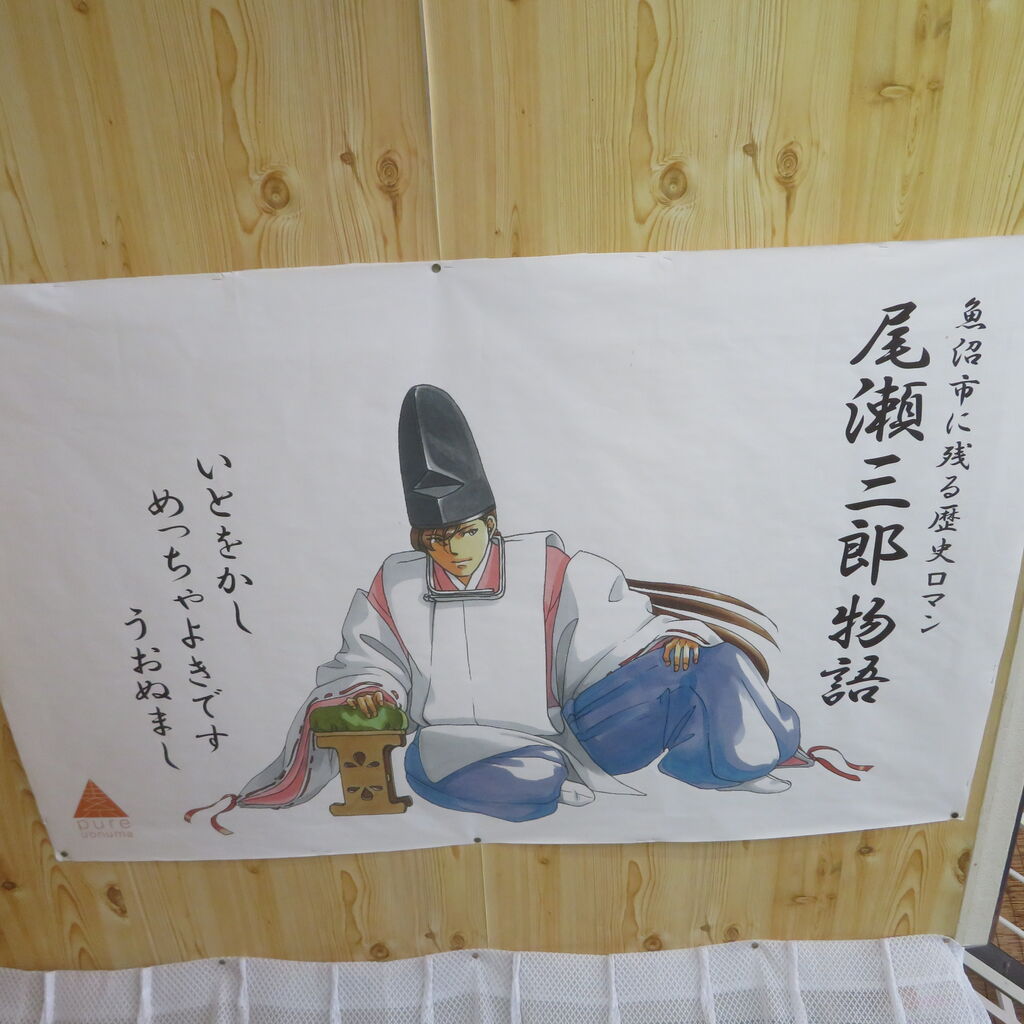 魚沼市に残る歴史ロマン
尾瀬三郎物語
いとをかし
めっちゃよきです
うおぬまし
pure
uonuma